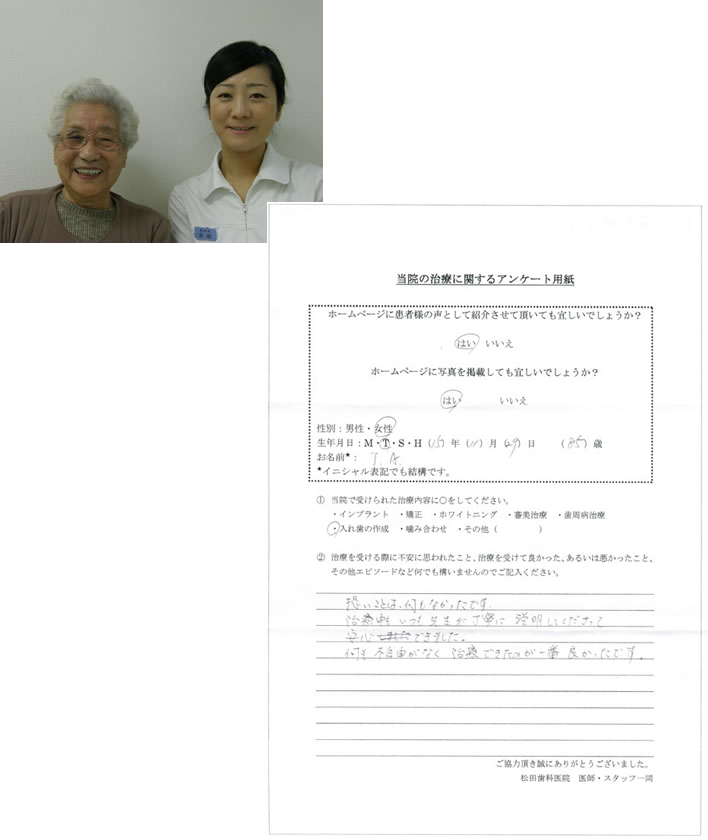 当院の治療に関するアンケート用紙
ホームページに患者様の声として紹介させて頂いても宜しいでしょうか？
はい いいえ
ホームページに写真を掲載しても宜しいでしょうか？
はい いいえ
性別：男性・女性
生年月日：M・T・S・H（15）年（11）月（29）日 （85）歳
お名前★： T. A.
★イニシャル表記でも結構です。
① 当院で受けられた治療内容に○をしてください。
・インプラント ・矯正 ・ホワイトニング ・審美治療 ・歯周病治療
・入れ歯の作成 ・噛み合わせ ・その他（ ）
② 治療を受ける際に不安に思われたこと、治療を受けて良かった、あるいは悪かったこと、
その他エピソードなど何でも構いませんのでご記入ください。
悪いことは、何もなかったです。
治療中も いつも 先生が丁寧に 説明してくださって
安心 できました。
何も 不自由がなく 治療できたのが一番 良かったです。
ご協力頂き誠にありがとうございました。
松田歯科医院 医師・スタッフ一同